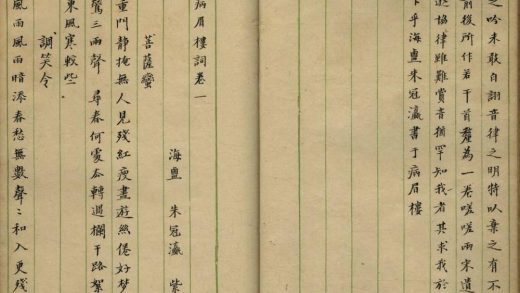 之吟未敢自詡音律之明特以棄之有不
前後所作若干首釐為一卷嗟嗟兩宋遺
協律雖難賞音猶罕知我者其求我於
下乎海鹽朱冠瀛書于病眉樓
病眉樓詞卷一
海鹽 朱冠瀛 紫
菩薩蠻
重門靜掩無人見殘紅瘦盡游絲倦好夢
驚三兩聲 尋春何處去轉過欄干路絮
東風寒較些
調笑令
風雨風雨暗添春愁無數聲〻和入更殘